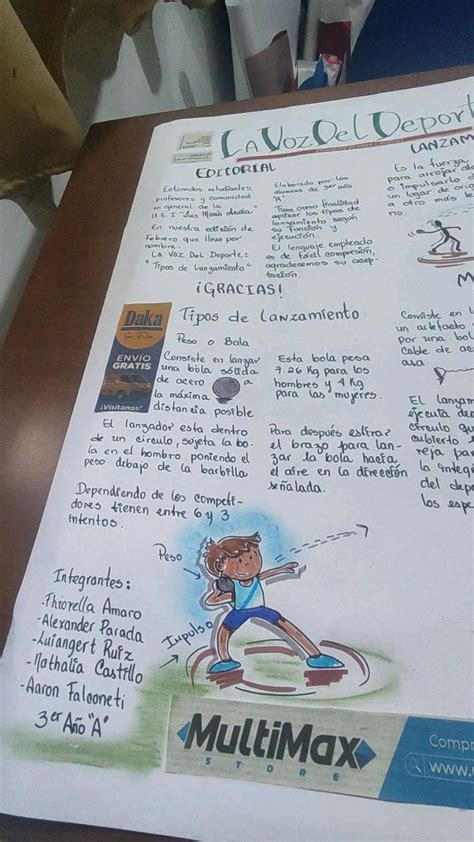 La Voz Del Deport
EDITORIAL
Estimados estudiantes,
profesores y comunidad
en general de la
U.E.I "Luis María
En nuestra edición de
Febrero que lleva por
nombre.
LA VOZ DEL DEPORTE:
"Tipos de lanzamiento"
Elaborado por los
alumnos de 3er año
"A"
Tiene como finalidad
los tipos de
lanzamiento según
su función y
ejecución.
El lenguaje empleado
es de fácil compresión,
agradecemos su acep-
tación.
¡GRACIAS!
LANZAM
Es la fuerza
para arrojar al
o impulsarlo d
un lugar de ori
a otro más le
no.
Daka
ENVÍO
GRATIS
¡Visítanos!
Tipos de Lanzamiento
Peso o Bala
Consiste en lanzar
una bola sólida
de acero a
la máxima
distancia posible
Esta bola pesa
7.26 Kg para los
hombres y 4 Kg
para las mujeres.
El lanzador esta dentro
de un círculo, sujeta la bo-
la en el hombro poniendo el
peso debajo de la barbilla
Para después estirar
el brazo para lan-
zar la bola hacia
el aire en la dirección
señalada.
Dependiendo de los competi-
dores tienen entre 6 y 3
intentos.
M
Consiste en l
un artefacto
por una bol
Cable de ac
asa
El lanzam
ejecuta d
círculo qu
cubierto
reja par
la integ
del depo
los espe
Peso
Impulso
Integrantes:
-Fhiorella Amaro
-Alexander Parada
-Luiangert Ruiz
-Nathalia Castillo
-Aaron Falooneti
3er Año "A"
MultiMax
STORE
Comp
www.